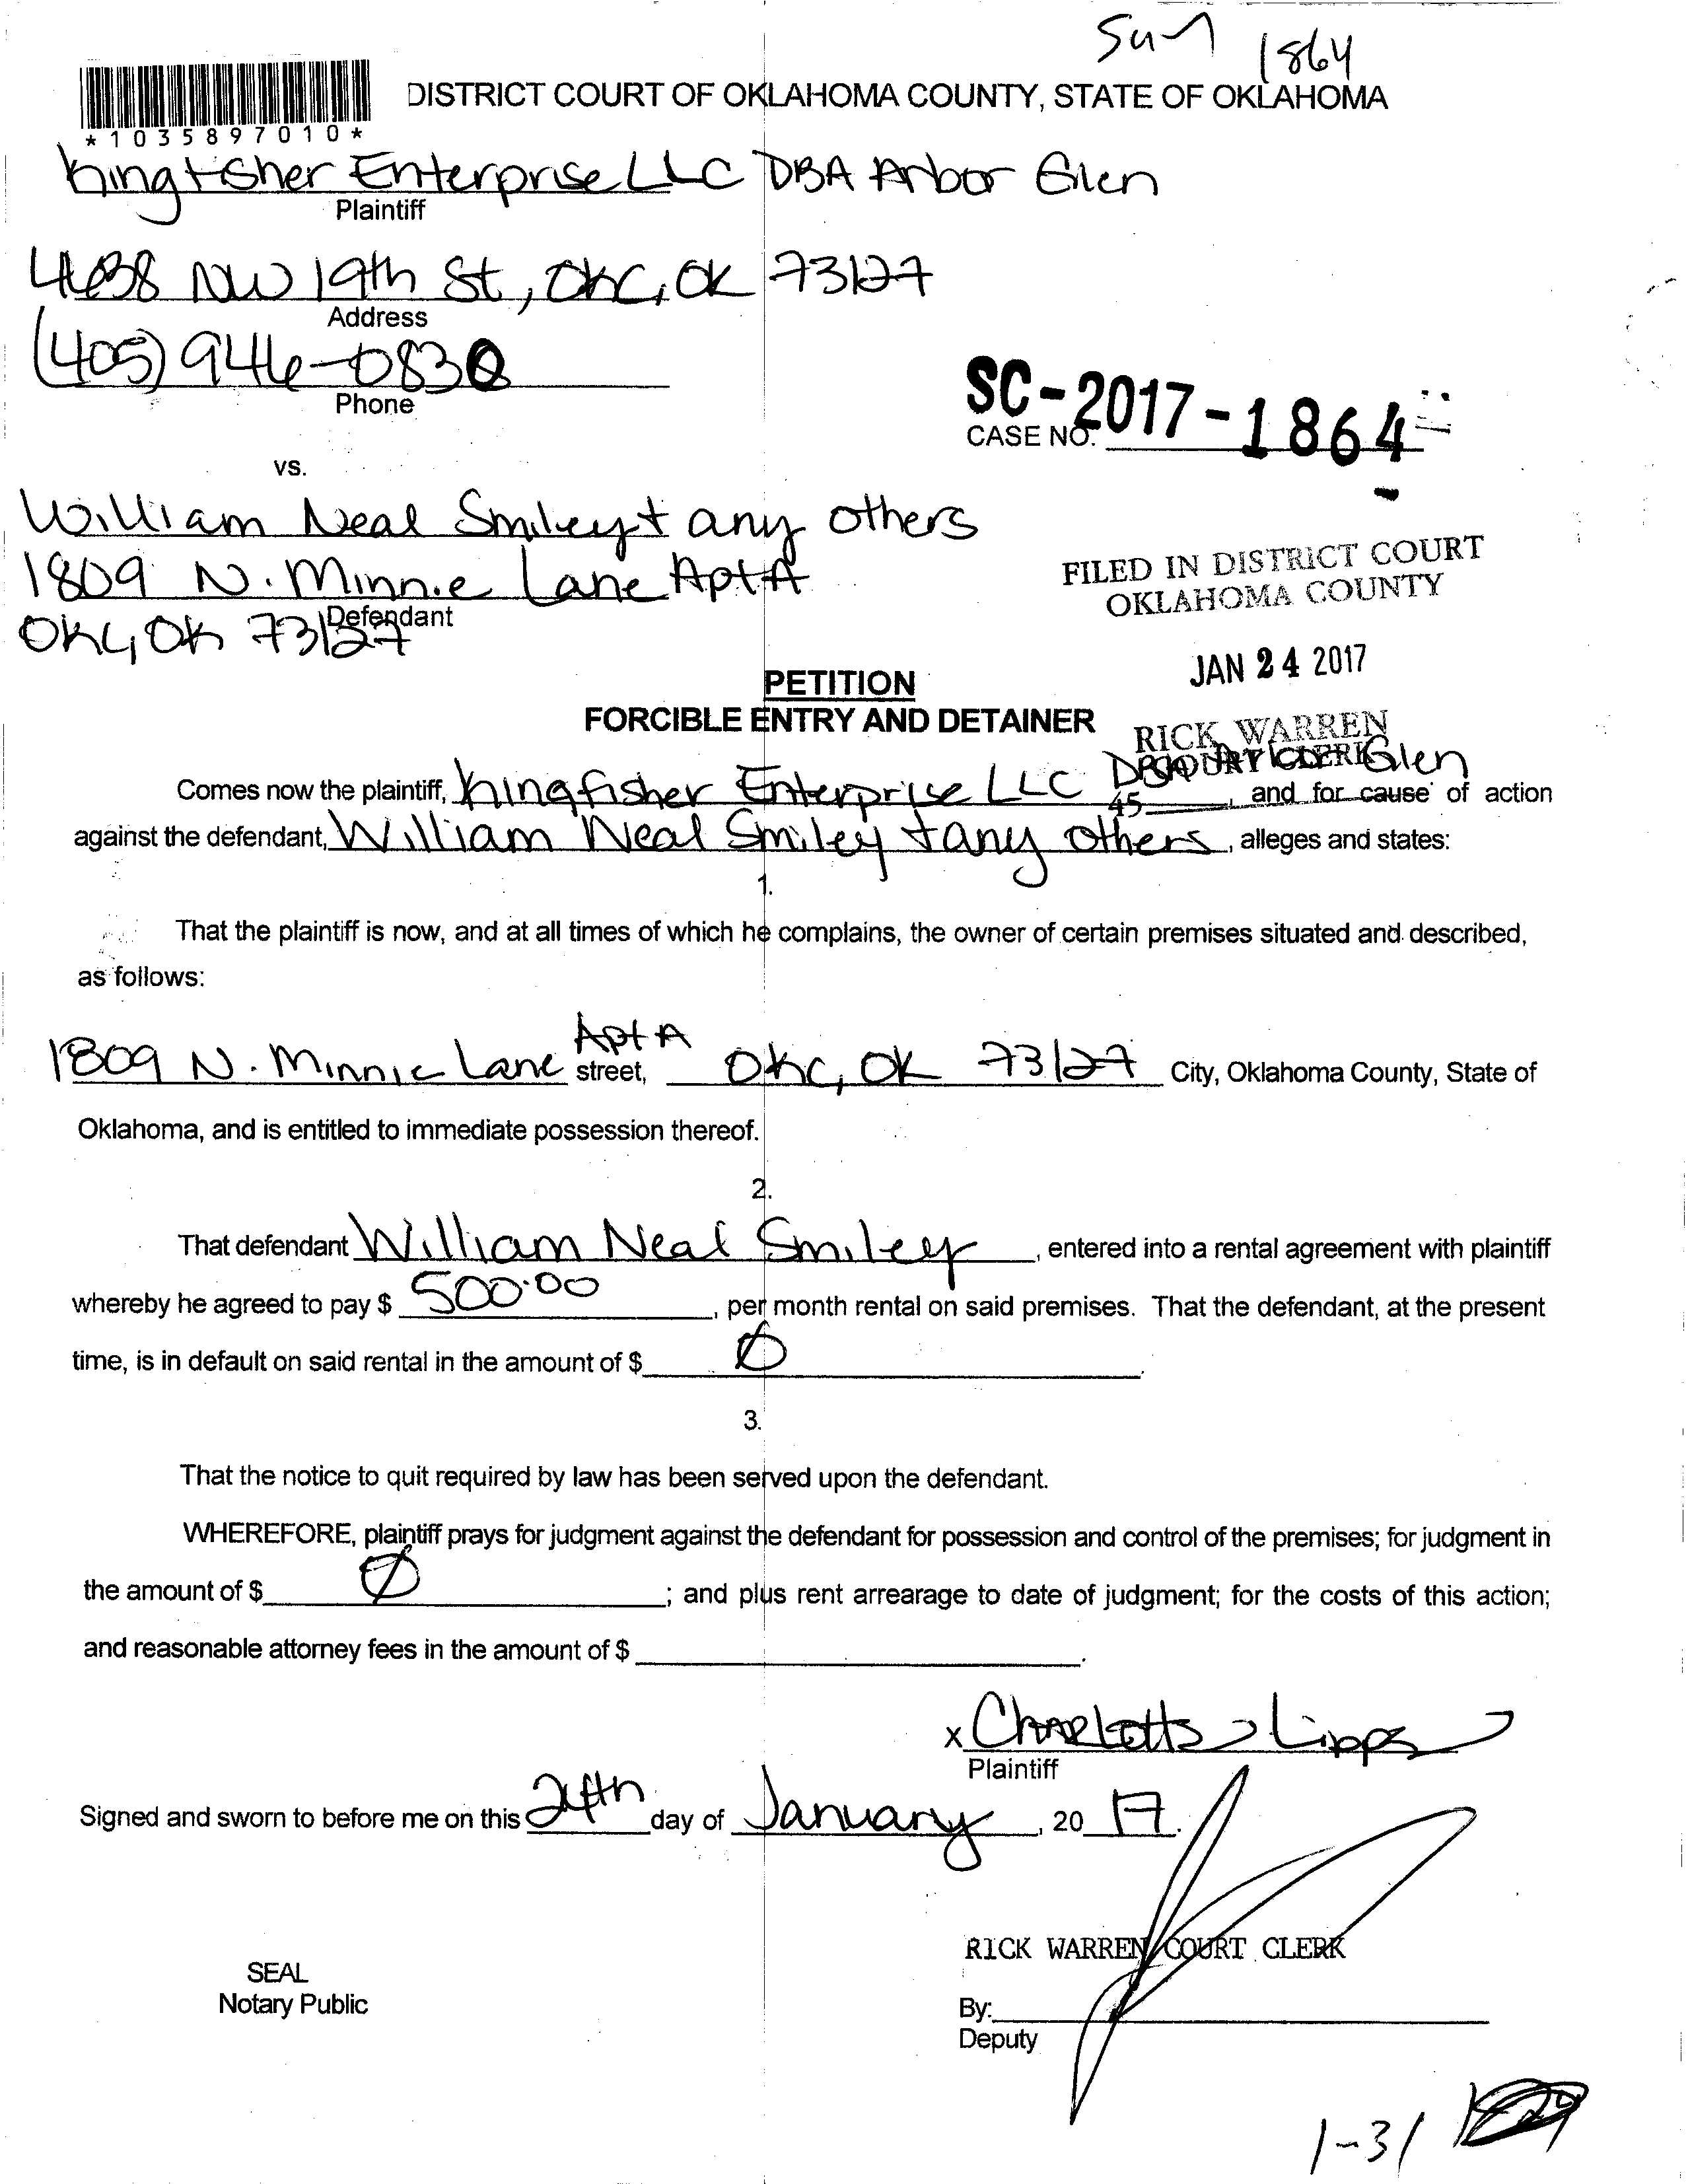 1864
DISTRICT COURT OF OKLAHOMA COUNTY, STATE OF OKLAHOMA
*1035897010*
Kingfisher Enterprise LLC DBA Arbor Glen
Plaintiff
NW 19th St, OKC, OK 73127
Address
(405) 946-0830
Phone
SC-2017-1864
CASE NO.
vs.
William Neal Smiley + any others
1809 N. Minnie Lane Apt A
Defendant
OKC, OK 73127
FILED IN DISTRICT COURT
OKLAHOMA COUNTY
JAN 24 2017
RICK WARREN
COURT CLERK
45
PETITION
FORCIBLE ENTRY AND DETAINER
Comes now the plaintiff, Kingfisher Enterprise LLC DBA Arbor Glen, and for cause of action
against the defendant, William Neal Smiley + any others, alleges and states:
1.
That the plaintiff is now, and at all times of which he complains, the owner of certain premises situated and described,
as follows:
1809 N. Minnie Lane Apt A street, OKC, OK 73127 City, Oklahoma County, State of
Oklahoma, and is entitled to immediate possession thereof.
2.
That defendant William Neal Smiley, entered into a rental agreement with plaintiff
whereby he agreed to pay $ 500.00, per month rental on said premises. That the defendant, at the present
time, is in default on said rental in the amount of $ Ø.
3.
That the notice to quit required by law has been served upon the defendant.
WHEREFORE, plaintiff prays for judgment against the defendant for possession and control of the premises; for judgment in
the amount of $ Ø; and plus rent arrearage to date of judgment; for the costs of this action;
and reasonable attorney fees in the amount of $
x Charlotte Lipps
Plaintiff
Signed and sworn to before me on this 24th day of January, 20 17.
RICK WARREN COURT CLERK
SEAL
Notary Public
By:
Deputy
1-31